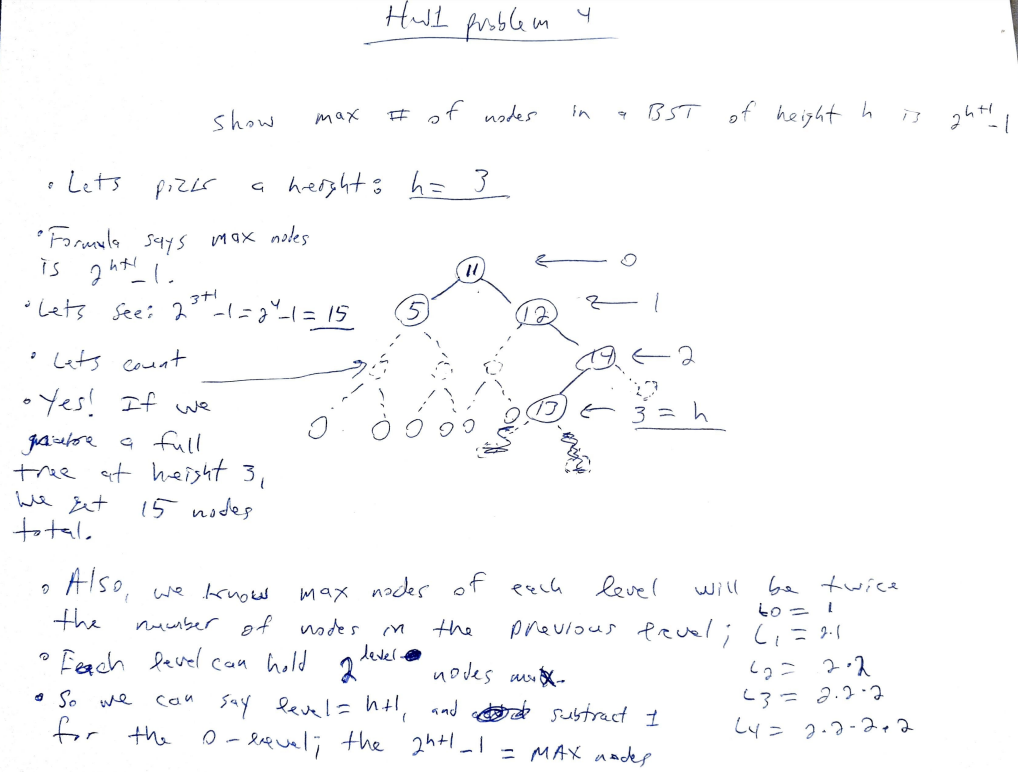 HW1 problem 4
Show max # of nodes in a BST of height h is 2^{h+1}-1
• Lets pick a height: h = 3
• Formula says max nodes
is 2^{h+1}-1.
• Lets see: 2^{3+1}-1=2^4-1=15
• Lets count
• Yes! If we
a full
tree at height 3,
we get 15 nodes
total.
11 ← 0
5 12 ← 1
14 ← 2
13 ← 3 = h
• Also, we know max nodes of each level will be twice
the number of nodes in the previous level;
L0 = 1
L1 = 2.1
L2 = 2.2
L3 = 2.2.2
L4 = 2.2.2.2
• Each level can hold 2^{level} nodes max.
• So we can say level = h+1, and subtract 1
for the 0-level; the 2^{h+1}-1 = MAX nodes